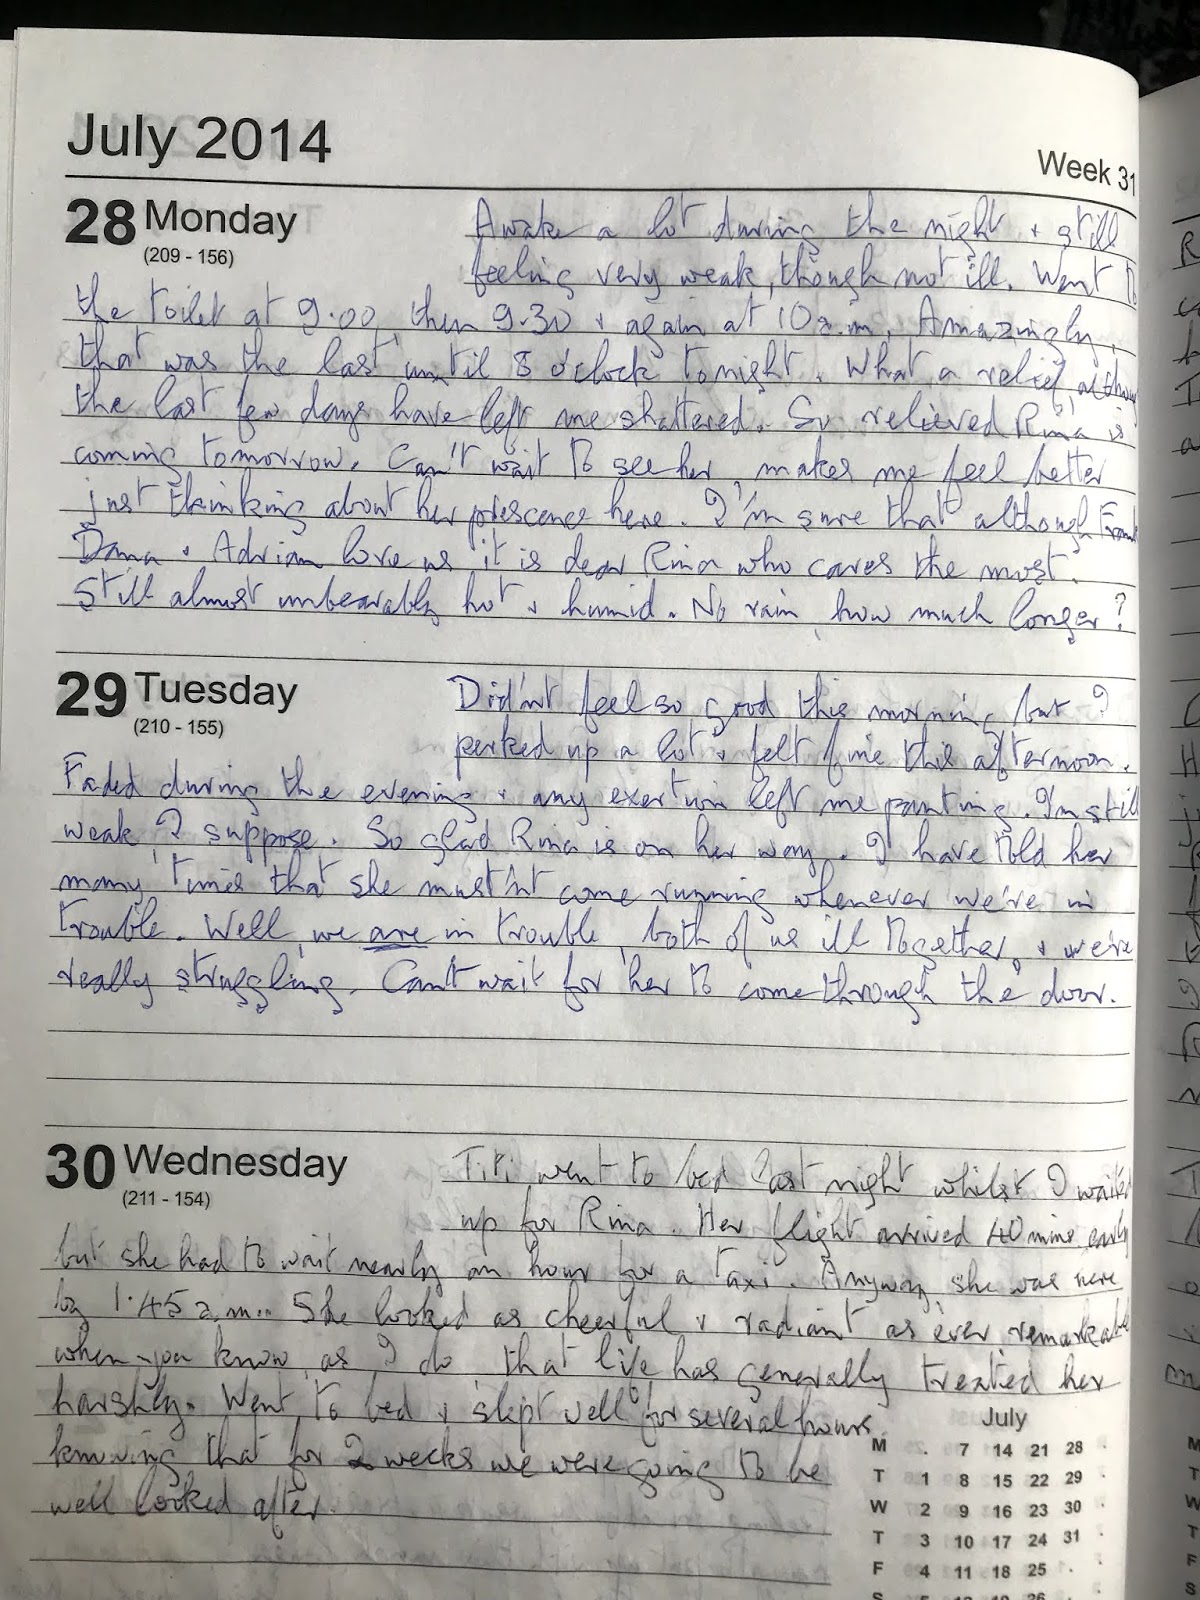 July 2014
Week 31
28 Monday
(209 - 156)
Awake a lot during the night + still
feeling very weak, though not ill. Went to
the toilet at 9.00, then 9.30 + again at 10 a.m. Amazingly,
that was the last until 8 o'clock tonight. What a relief, although
the last few days have left me shattered. So relieved Rina is
coming tomorrow. Can't wait to see her, makes me feel better
just thinking about her prescence here. I'm sure that although
Dana + Adrian love us, it is dear Rina who cares the most.
Still almost unbearably hot + humid. No rain, how much longer?
29 Tuesday
(210 - 155)
Did'nt feel so good this morning, but I
perked up a lot + felt fine this afternoon.
Faded during the evening + any exertion left me panting. I'm still
weak, I suppose. So glad Rina is on her way. I have told her
many times that she must'nt come running whenever we're in
trouble. Well, we are in trouble, both of us ill together, + we're
really struggling. Can't wait for her to come through the door.
30 Wednesday
(211 - 154)
Titi went to bed last night whilst I waited
up for Rina. Her flight arrived 40 mins early
but she had to wait nearly an hour for a taxi. Anyway she was here
by 1.45 a.m.. She looked as cheerful + radiant as ever, remarkable
when you know, as I do, that life has generally treated her
harshly. Went to bed + slept well for several hours,
knowing that for 2 weeks we were going to be
well looked after.
July
M 7 14 21 28
T 1 8 15 22 29
W 2 9 16 23 30
T 3 10 17 24 31
F 4 11 18 25